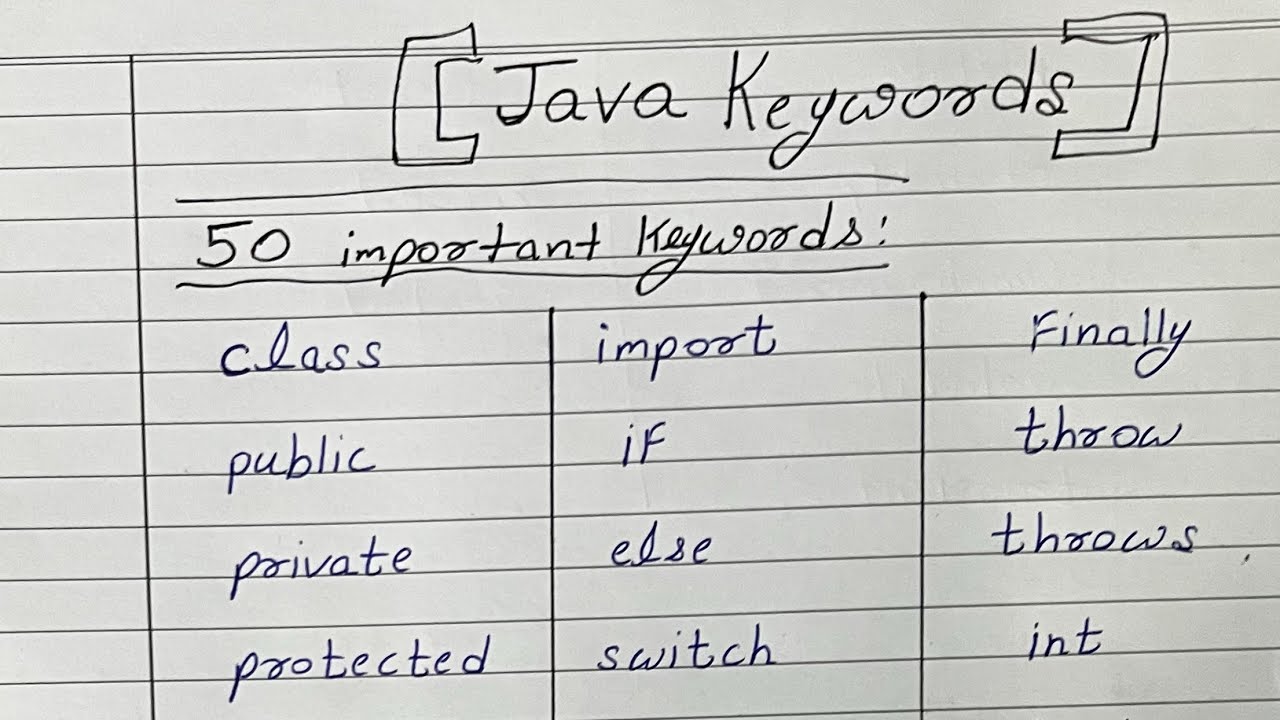 Java Keywords
50 important Keywords:
class import Finally
public if throw
private else throws
protected switch int